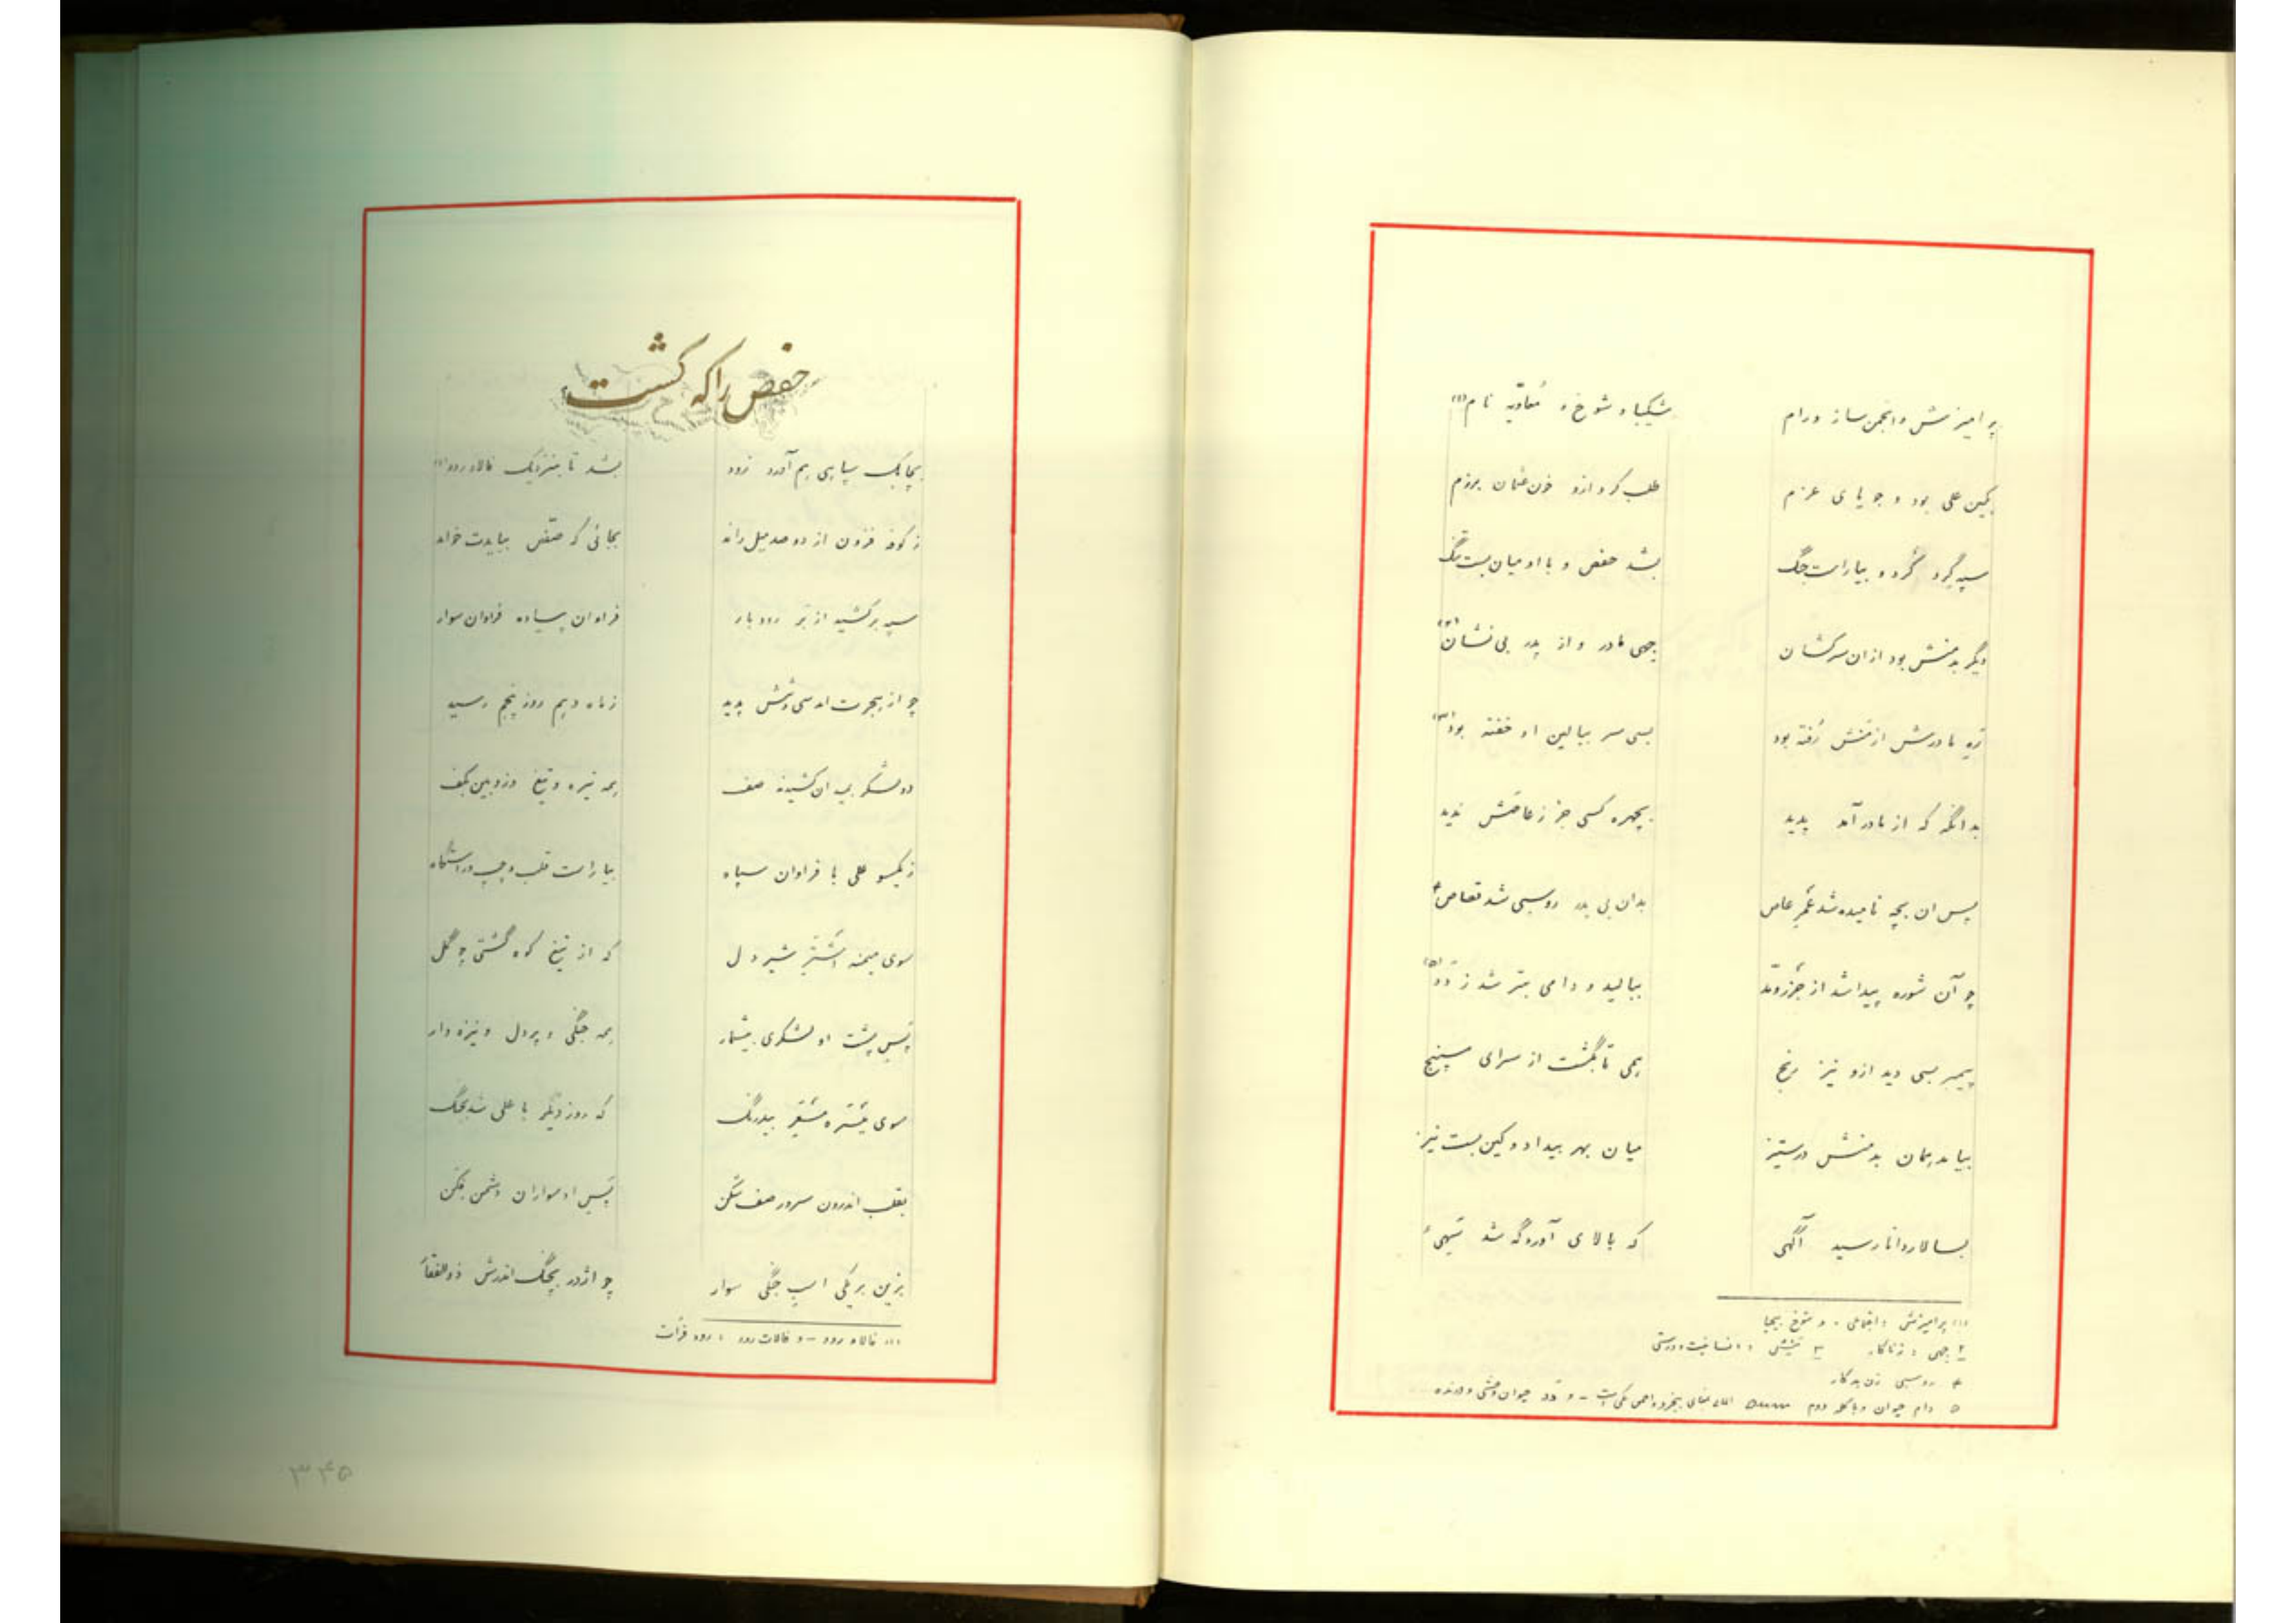 پر امیزش و انجمن ساز و رام شکیبا و شوخ و مُعاویّه نام (۱)
بکین علی بود و جویای عزم طلب کرد ازو خون عثمان برزم
سپه گِرد کرد و بیاراست جنگ بشد حفص و با او میان بست تنگ
دیگر بد منش بود ازان سرکشان جهی مادر و از پدر بی نشان (۲)
زه مادرش از منش رُفته بود بسی سر ببالین او خفته بود (۳)
بدانگه که از مادر آمد پدید بچهره کسی جز ز عاصش ندید
پس ان بچه نامیده شد عَمرِ عاص بدان بی پدر روسپی شد قصاص ۴
چو آن شوره پیدا شد از جزر و مدّ ببالید و دامی بتر شد ز دَد (۵)
پیمبر بسی دید ازو نیز رنج همی تا بگشت از سرای سپنج
بیامد همان بدمنش در ستیز میان بهر بیداد و کین بست نیز
بسالار دانا رسید آگهی که بالای آوردگه شد تهی
(۱) پر امیزش : اجتماعی - و شوخ بیحیا
۲ جهی : زناکار ۳ منش : انسانیت و درستی
۴ روسپی زن بدکار
۵ دام حیوان و دَد حیوان وحشی و درنده
حفص را که کشت
بچابک سپاهی بهم آورد زود بشد تا بنزدیک فالاد رود (۱)
ز کوفه فزون از دو صد میل راند بجائی که صفّین ببایدت خواند
سپه برکشید از بَرِ رودبار فراوان پیاده فراوان سوار
چو از هجرت امد سی و شش پدید ز ماه دهم روز پنجم رسید
دو لشکر بمیدان کشیدند صف همه نیزه و تیغ و زوبین بکف
ز یکسو علی با فراوان سپاه بیاراست قلب و چپ و راستگاه
سوی میمنه اَشتَرِ شیر دل که از تیغ او کوه گشتی چو گل
پَسِ پشت او لشکری بیشمار همه جنگی و پردل و نیزه دار
سوی مَیسَره بیدرنگ که روز دیگر با علی شد بجنگ
بقلب اندرون سرور صف شکن پَسِ او سواران دشمن فکن
بزین بر یکی اسپ جنگی سوار چو اژدر بچنگ اندرش ذوالفقار
(۱) فالاد رود - و فالات رود : رود فرُات
۳۴۵